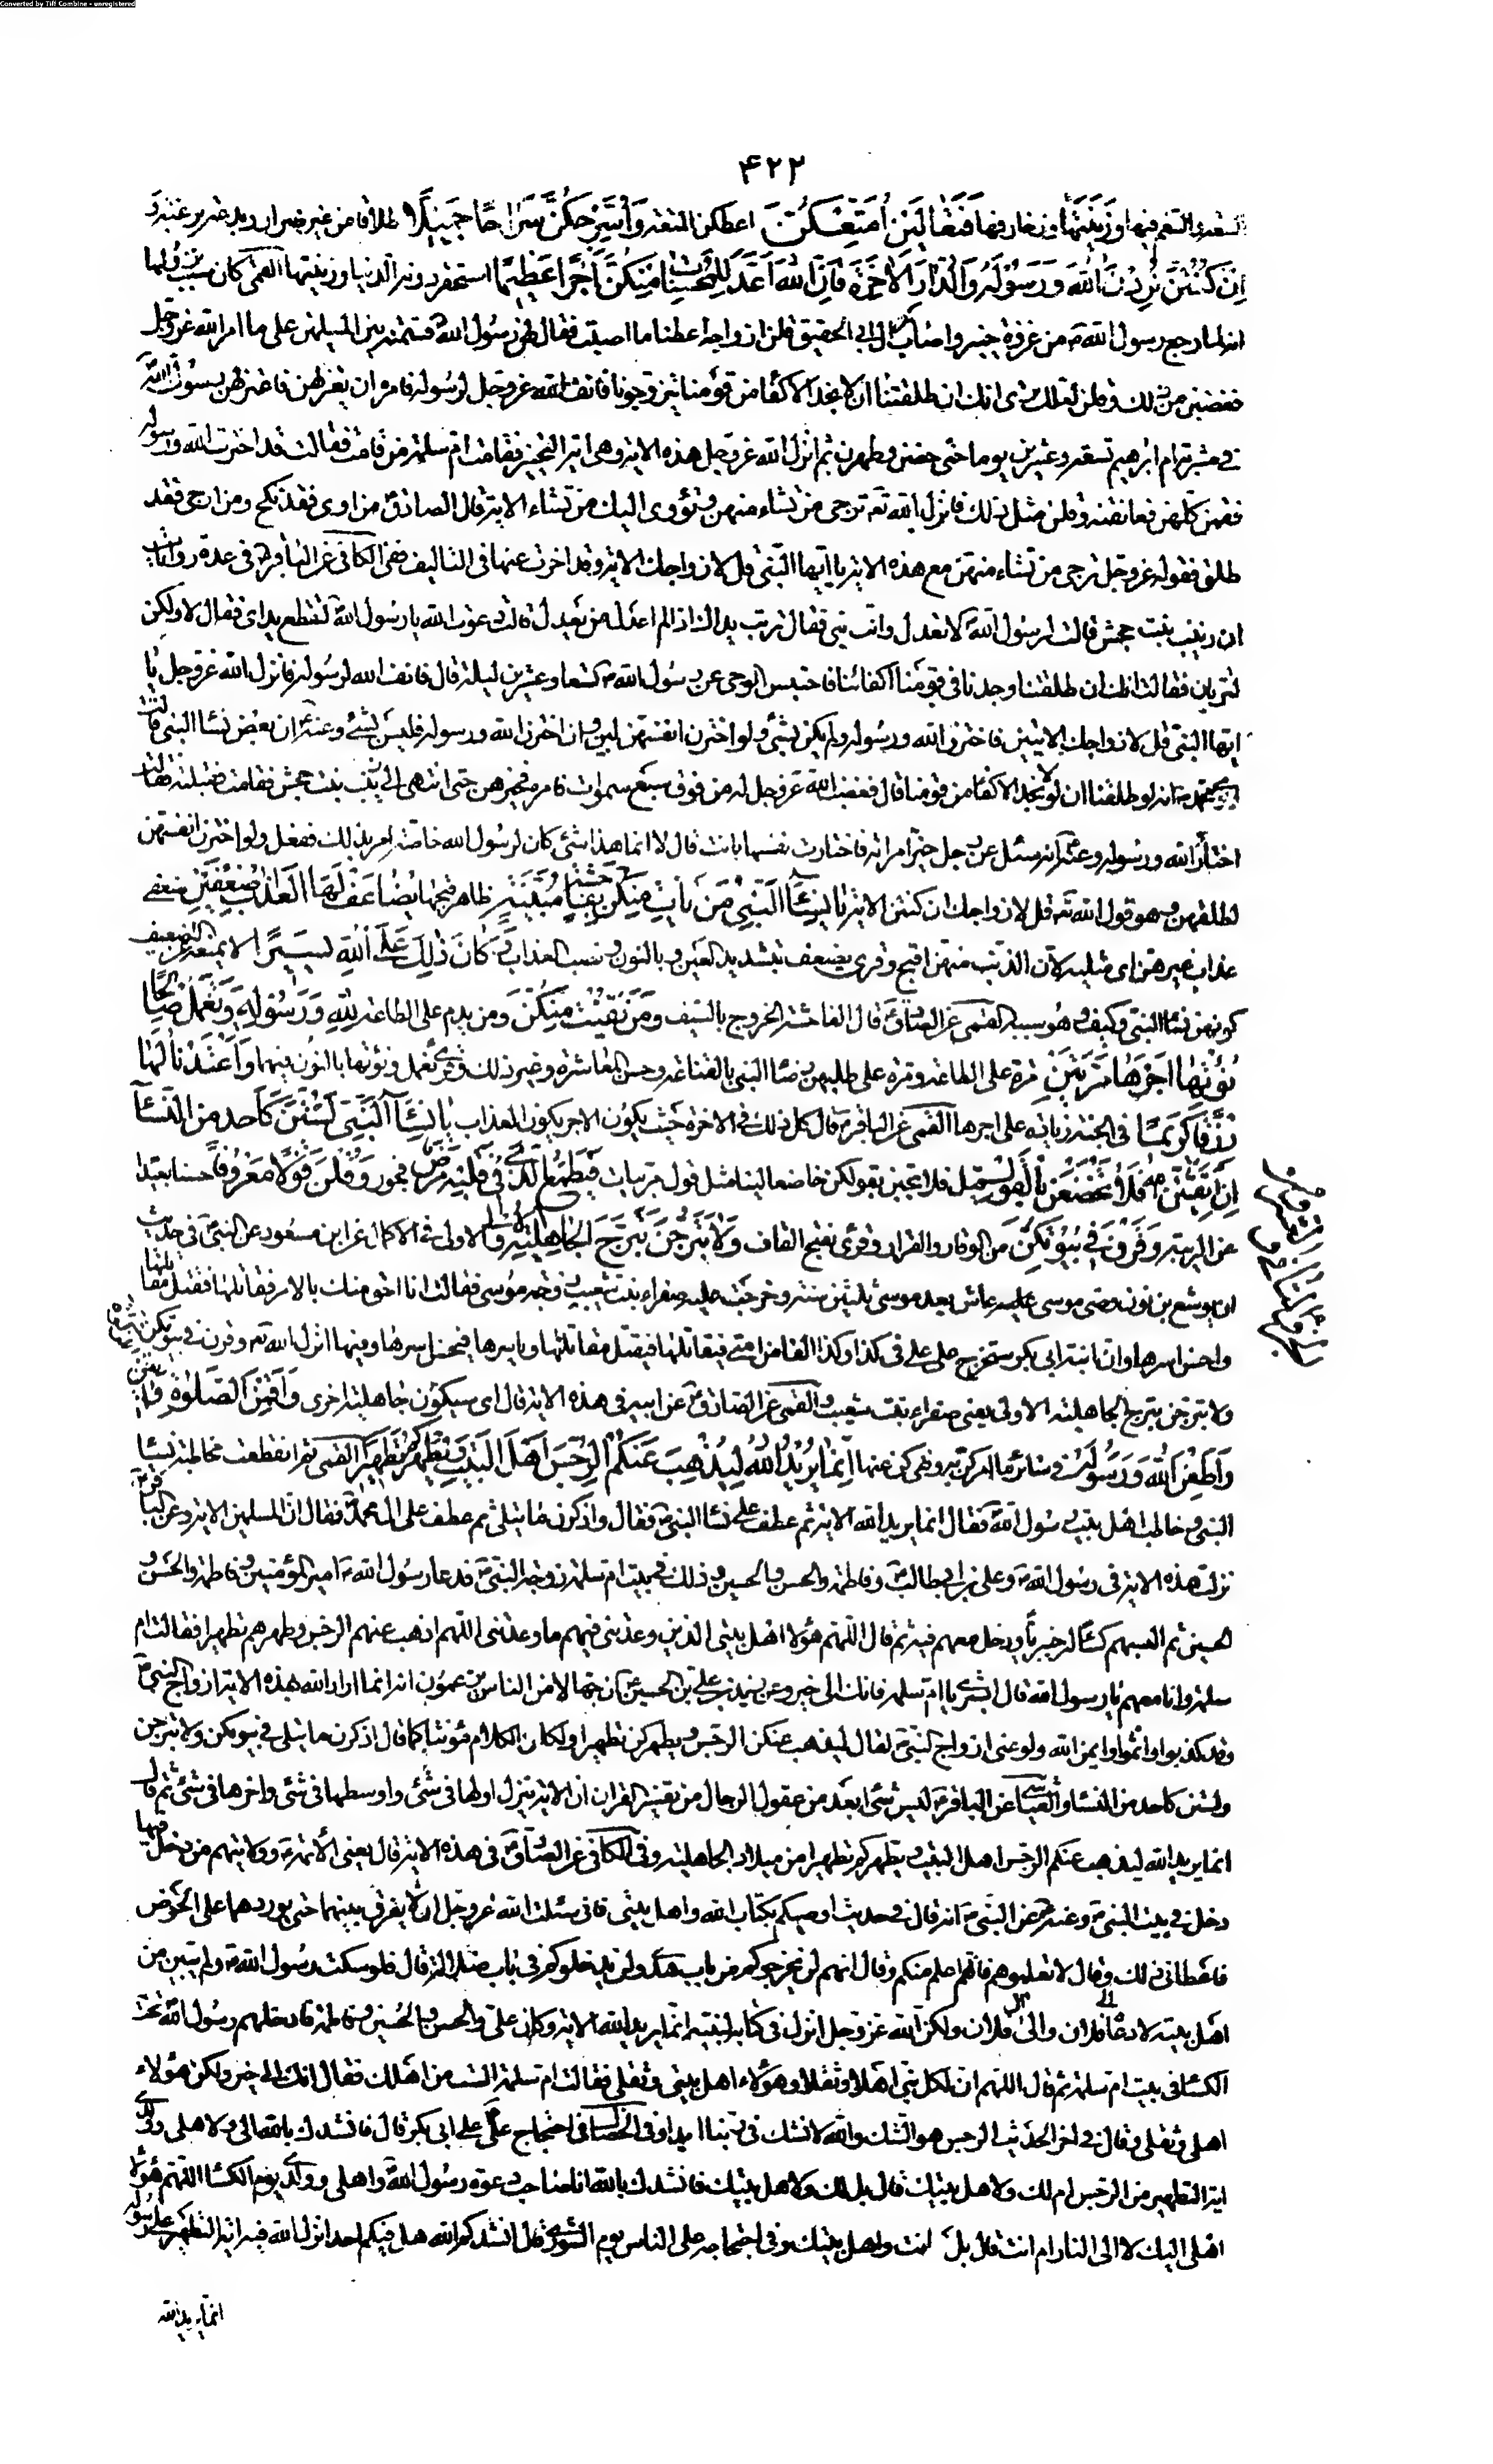 Converted by Tiff Combine - unregistered
۴۲۲
السعة والتنعم فيها وزينتها وزخارفها فتعالين امتعكن اعطكن المتعة واسرحكن سراحا جميلا طلاقا من غير ضرار
ان كنتن تردن الله ورسوله والدار الاخرة فان الله اعد للمحسنات منكن اجرا عظيما يستحقر دونه الدنيا وزينتها القمى كان سبب نزولها
انه لما رجع رسول الله ص من غزوة خيبر واصاب كنز ال ابى الحقيق قلن ازواجه اعطنا ما اصبت فقال لهن رسول الله ص قسمته بين المسلمين على ما امر الله عز وجل
فغضبن من ذلك وقلن لعلك ترى انك ان طلقتنا ان لا نجد الاكفاء من قومنا يتزوجونا فانف الله عز وجل لرسوله فامره ان يعتزلهن فاعتزلهن رسول الله
فى مشربة ام ابرهيم تسعة وعشرين يوما حتى حضن وطهرن ثم انزل الله عز وجل هذه الاية وهى اية التخيير فقامت ام سلمة اول من قامت فقالت قد اخترت الله ورسوله
فقمن كلهن فعانقنه وقلن مثل ذلك فانزل الله تع ترجى من تشاء منهن وتؤوى اليك من تشاء الاية قال الصادق من اوى فقد نكح ومن ارجى فقد
طلق فقوله عز وجل ترجى من تشاء منهن مع هذه الاية يا ايها النبى قل لازواجك الاية وقد اخرت عنها فى التاليف وفى الكافى عن الباقر ع فى عدة روايات
ان زينب بنت جحش قالت لرسول الله ص لا تعدل وانت نبى فقال تربت يداك اذا لم اعدل من يعدل قالت دعوت الله يا رسول الله لتقطع يداى فقال لا ولكن
لتتربان فقالت انك ان طلقتنا وجدنا فى قومنا اكفائنا فاحتبس الوحى عن رسول الله ص تسعا وعشرين ليلة قال فانف الله لرسوله فانزل الله عز وجل يا
ايها النبى قل لازواجك الايتين فاخترن الله ورسوله ولم يكن شئ ولو اخترن انفسهن لبن وان اخترن الله ورسوله فليس بشئ وعنه ع ان بعض نساء النبى قالت
ايرى محمد ص انه لو طلقنا ان لا نجد الاكفاء من قومنا قال فغضب الله عز وجل له من فوق سبع سموات فامره فخيرهن حتى انتهى الى زينب بنت جحش فقامت فقبلته وقالت
اختار الله ورسوله وعنه ع انه سئل عن رجل خير امراته فاختارت نفسها بانت قال لا انما هذا شئ كان لرسول الله خاصة امر بذلك ففعل ولو اخترن انفسهن
لطلقهن وهو قول الله تع قل لازواجك ان كنتن الاية يا نساء النبى من يات منكن بفاحشة مبينة ظاهر قبحها يضاعف لها العذاب ضعفين ضعفى
عذاب غيرهن اى مثليه لان الذنب منهن اقبح وقرئ يضعف بتشديد العين وبالنون ونصب العذاب وكان ذلك على الله يسيرا لا يمنعه عن التضعيف
كونهن نساء النبى وكيف وهو سببه القمى عن الصادق قال الفاحشة الخروج بالسيف ومن يقنت منكن ومن يدم على الطاعة لله ورسوله وتعمل صالحا
نؤتها اجرها مرتين مرة على الطاعة ومرة على طلبهن رضا النبى بالقناعة وحسن المعاشرة وغير ذلك وقرئ يعمل ويؤتها بالنون بينهما واعتدنا لها
رزقا كريما فى الجنة زيادة على اجرها القمى عن الباقر ع قال كل ذلك فى الاخرة حيث يكون الاجر يكون العذاب يا نساء النبى لستن كاحد من النساء
ان اتقيتن فلا تخضعن بالقول فلا تجئن بقولكن خاضعا لينا مثل قول المريبات فيطمع الذى فى قلبه مرض فجور وقلن قولا معروفا حسنا بعيدا
عن الريبة وقرن فى بيوتكن من الوقار والقرار وقرئ بفتح القاف ولا تبرجن تبرج الجاهلية الاولى فى الاكمال عن ابن مسعود عن النبى ص فى حديث
ان يوشع بن نون وصى موسى عليه عاش بعد موسى ثلثين سنة وخرجت عليه صفراء بنت شعيب زوجة موسى فقالت انا احق منك بالامر فقاتلها فقتل مقاتليها
واحسن اسرها وان ابنة ابى بكر ستخرج على على فى كذا وكذا الفا من امتى فيقاتلها فيقتل مقاتليها وياسرها فيحسن اسرها وفيها انزل الله تع وقرن فى بيوتكن
ولا تبرجن تبرج الجاهلية الاولى يعنى صفراء بنت شعيب والقمى عن الصادق عن ابيه فى هذه الاية قال اى سيكون جاهلية اخرى واقمن الصلوة واتين
واطعن الله ورسوله فى سائر ما امركن به ونهاكن عنها انما يريد الله ليذهب عنكم الرجس اهل البيت ويطهركم تطهيرا القمى ثم انقطعت مخاطبة نساء
النبى وخاطب اهل بيت رسول الله ص فقال انما يريد الله الاية ثم عطف على نساء النبى ص فقال واذكرن ما يتلى ثم عطف على ال محمد فقال ان المسلمين الاية وعن الباقر ع
نزلت هذه الاية فى رسول الله ص وعلى بن ابى طالب ع وفاطمة والحسن والحسين ع وذلك فى بيت ام سلمة زوجة النبى ص فدعا رسول الله ص امير المؤمنين وفاطمة والحسن و
الحسين ثم البسهم كساء له خيبريا ودخل معهم فيه ثم قال اللهم هؤلاء اهل بيتى الذين وعدتنى فيهم ما وعدتنى اللهم اذهب عنهم الرجس وطهرهم تطهيرا فقالت ام
سلمة وانا معهم يا رسول الله قال ابشرى يا ام سلمة فانك الى خير وعن زيد بن على بن الحسين ع ان جهالا من الناس يزعمون انه انما اراد الله بهذه الاية ازواج النبى ص
وقد كذبوا واثموا وايم الله ولو عنى ازواج النبى ص لقال ليذهب عنكن الرجس ويطهركن تطهيرا ولكان الكلام مؤنثا كما قال اذكرن ما يتلى فى بيوتكن ولا تبرجن
ولستن كاحد من النساء والعياشى عن الباقر ع ليس شئ ابعد من عقول الرجال من تفسير القران ان الاية ينزل اولها فى شئ واوسطها فى شئ واخرها فى شئ ثم قال
انما يريد الله ليذهب عنكم الرجس اهل البيت ويطهركم تطهيرا من ميلاد الجاهلية وفى الكافى عن الصادق ع فى هذه الاية قال يعنى الائمة ع وولايتهم من دخل فيها
دخل فى بيت النبى ص وعنه ع عن النبى ص انه قال فى حديث اوصيكم بكتاب الله واهل بيتى فانى سئلت الله عز وجل ان لا يفرق بينهما حتى يوردهما على الحوض
فاعطانى ذلك وقال لا تعلموهم فانهم اعلم منكم وقال انهم لن يخرجوكم من باب هدى ولن يدخلوكم فى باب ضلالة قال فلو سكت رسول الله ص ولم يبين من
اهل بيته لادعاها ال فلان وال فلان ولكن الله عز وجل انزل فى كتابه لنبيه انما يريد الله الاية وكان على والحسن والحسين وفاطمة فادخلهم رسول الله تحت
الكساء فى بيت ام سلمة ثم قال اللهم ان لكل نبى اهلا وثقلا وهؤلاء اهل بيتى وثقلى فقالت ام سلمة الست من اهلك فقال انك الى خير ولكن هؤلاء
اهلى وثقلى وقال فى اخر الحديث الرجس هو الشك والله لا نشك فى ربنا ابدا وفى الخصال فى احتجاج على ع على ابى بكر قال فانشدك بالله الى ولاهلى وولدى
اية التطهير من الرجس ام لك ولاهل بيتك قال بل لك ولاهل بيتك قال فانشدك بالله انا صاحب دعوة رسول الله ص واهلى وولدى يوم الكساء اللهم هؤلاء
اهلى اليك لا الى النار ام انت قال بل انت واهل بيتك وفى احتجاجه على الناس يوم الشورى قال انشدكم الله هل فيكم احد انزل الله فيه اية التطهير على رسوله
انما يريد الله